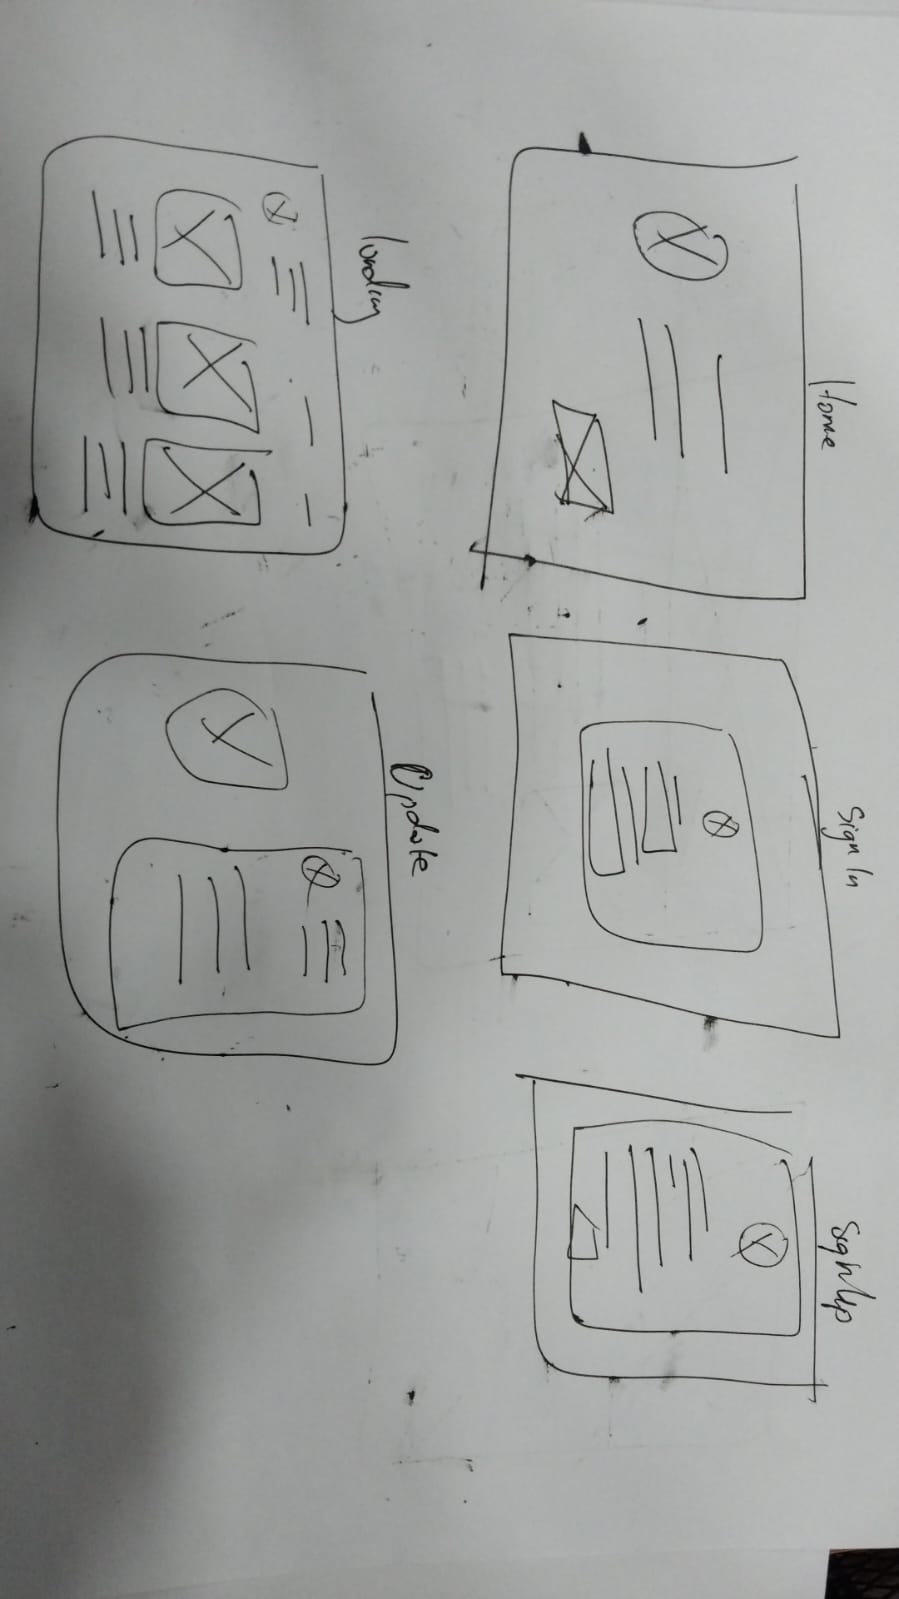 Home
Sign In
SignUp
loading
Update